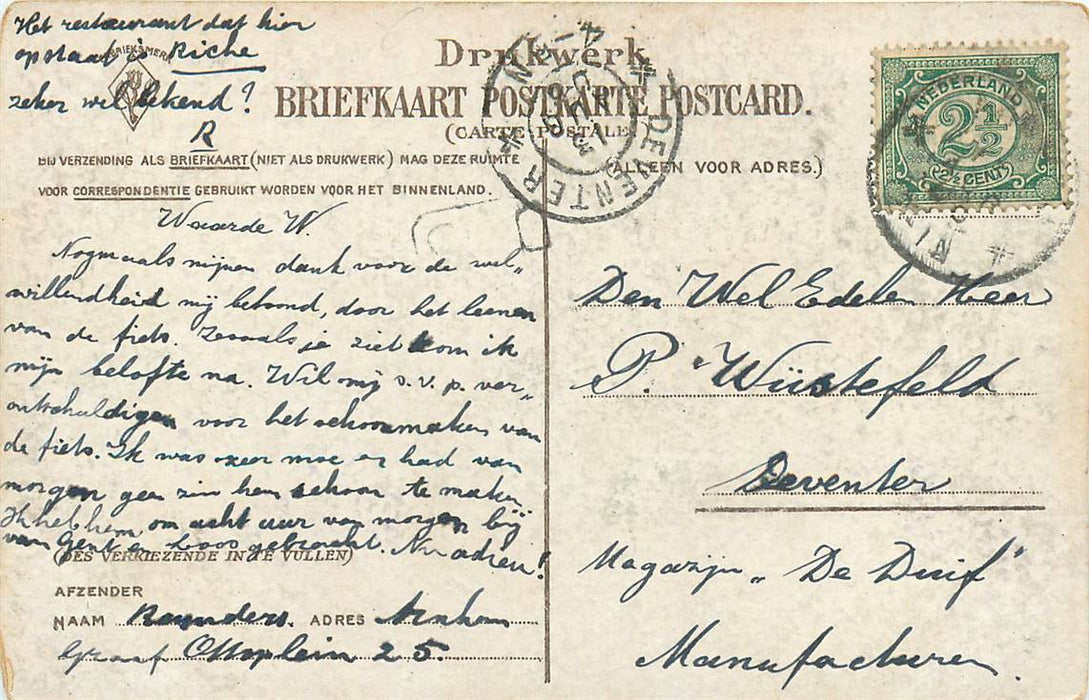 Het restaurant dat hier
op staat is Riche
zeker wel bekend?
R
Drukwerk
BRIEFKAART POSTKARTE POSTCARD.
(CARTE POSTALE)
BIJ VERZENDING ALS BRIEFKAART (NIET ALS DRUKWERK) MAG DEZE RUIMTE
VOOR CORRESPONDENTIE GEBRUIKT WORDEN VOOR HET BINNENLAND.
(ALLEEN VOOR ADRES.)
NEDERLAND
2½
(2½ CENT)
DEVENTER
Waarde W.
Nogmaals mijnen dank voor de wel„
willendheid mij betoond, door het leenen
van de fiets. Zooals je ziet kom ik
mijn belofte na. Wil mij s.v.p. ver„
ontschuldigen voor het schoonmaken van
de fiets. Ik was zeer moe en had van
morgen geen zin hem schoon te maken
Ik heb hem om acht uur van morgen bij
van Gent en Loos gebracht. Nu adieu!
(DES VERKIEZENDE IN TE VULLEN)
AFZENDER
NAAM Reynders. ADRES Arnhem
Graaf Ottoplein 25.
Den Wel Edelen Heer
P. Wüstefeld
Deventer
Magazijn „De Duif"
Manufacturen.